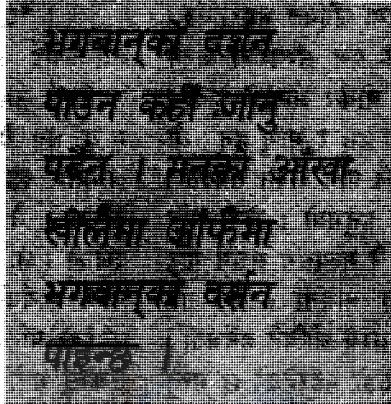 भगवान्को दर्शन
पाउन कहीं जानु
पर्दैन । मनको आँखा
खोलौंमा आफैंमा
भगवान्को दर्शन
पाइन्छ ।